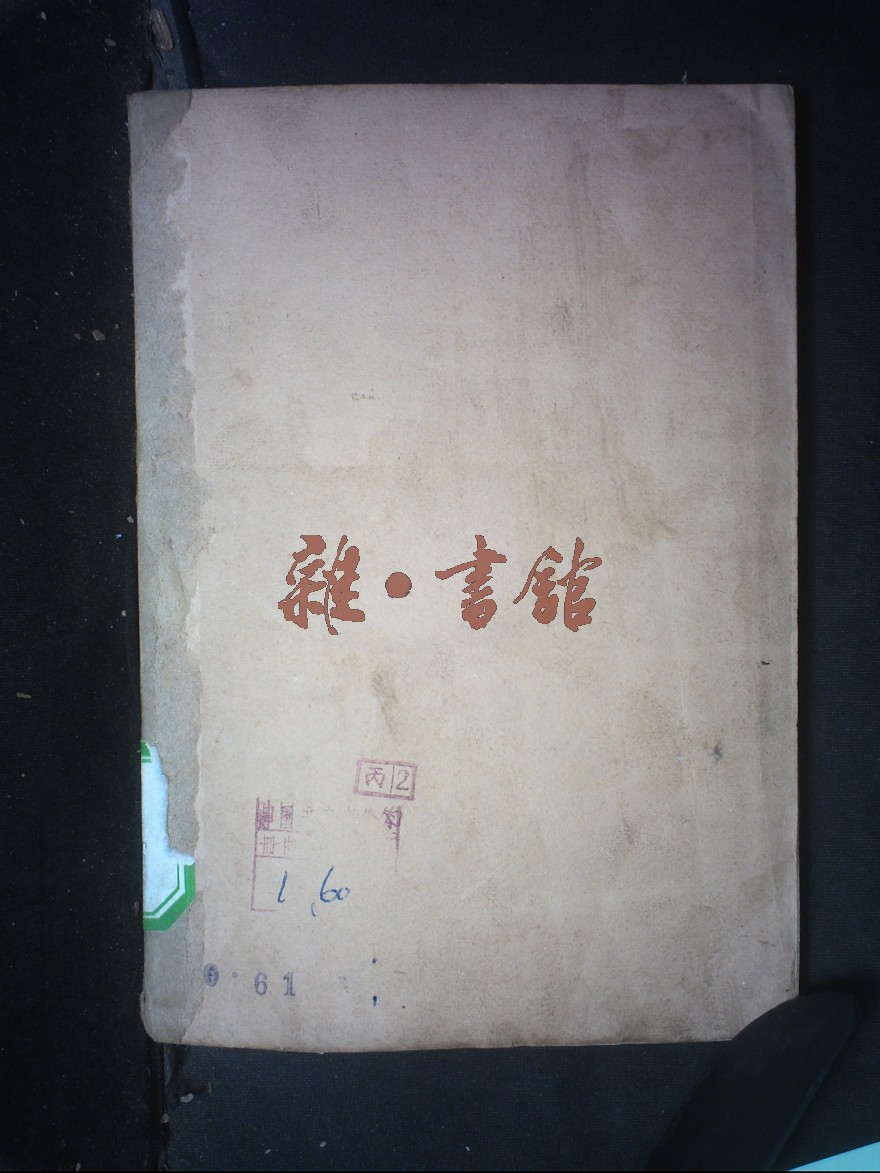 雜·書館
丙2
中国
1.60
0.61